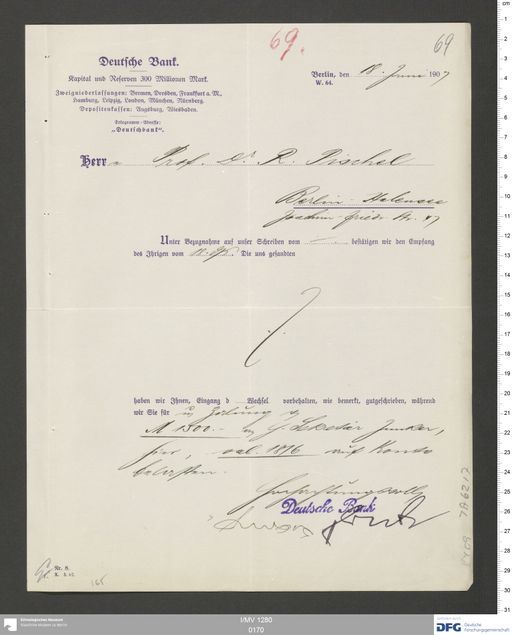 69.
69
Deutsche Bank.
Kapital und Reserven 300 Millionen Mark.
Zweigniederlassungen: Bremen, Dresden, Frankfurt a. M.,
Hamburg, Leipzig, London, München, Nürnberg.
Depositenkassen: Augsburg, Wiesbaden.
Telegramm-Adresse:
„Deutschbank“.
Berlin, den 18. Juni 1907
W. 64.
Herrn Prof. Dr R. Pischel
Berlin-Halensee
Joachim-Friedr. Str. 47
Unter Bezugnahme auf unser Schreiben vom bestätigen wir den Empfang
des Ihrigen vom Die uns gesandten
haben wir Ihnen, Eingang d Wechsel vorbehalten, wie bemerkt, gutgeschrieben, während
wir Sie für Zahlung
M 1500.–
hier, val. 18/6 auf Konto
belasten.
Hochachtungsvoll
Deutsche Bank
Nr. 8.
165
TA 6212
I/MV 1280
0170
Ethnologisches Museum
Staatliche Museen zu Berlin
DFG
Deutsche
Forschungsgemeinschaft
cm
1
2
3
4
5
6
7
8
9
10
11
12
13
14
15
16
17
18
19
20
21
22
23
24
25
26
27
28
29
30
31